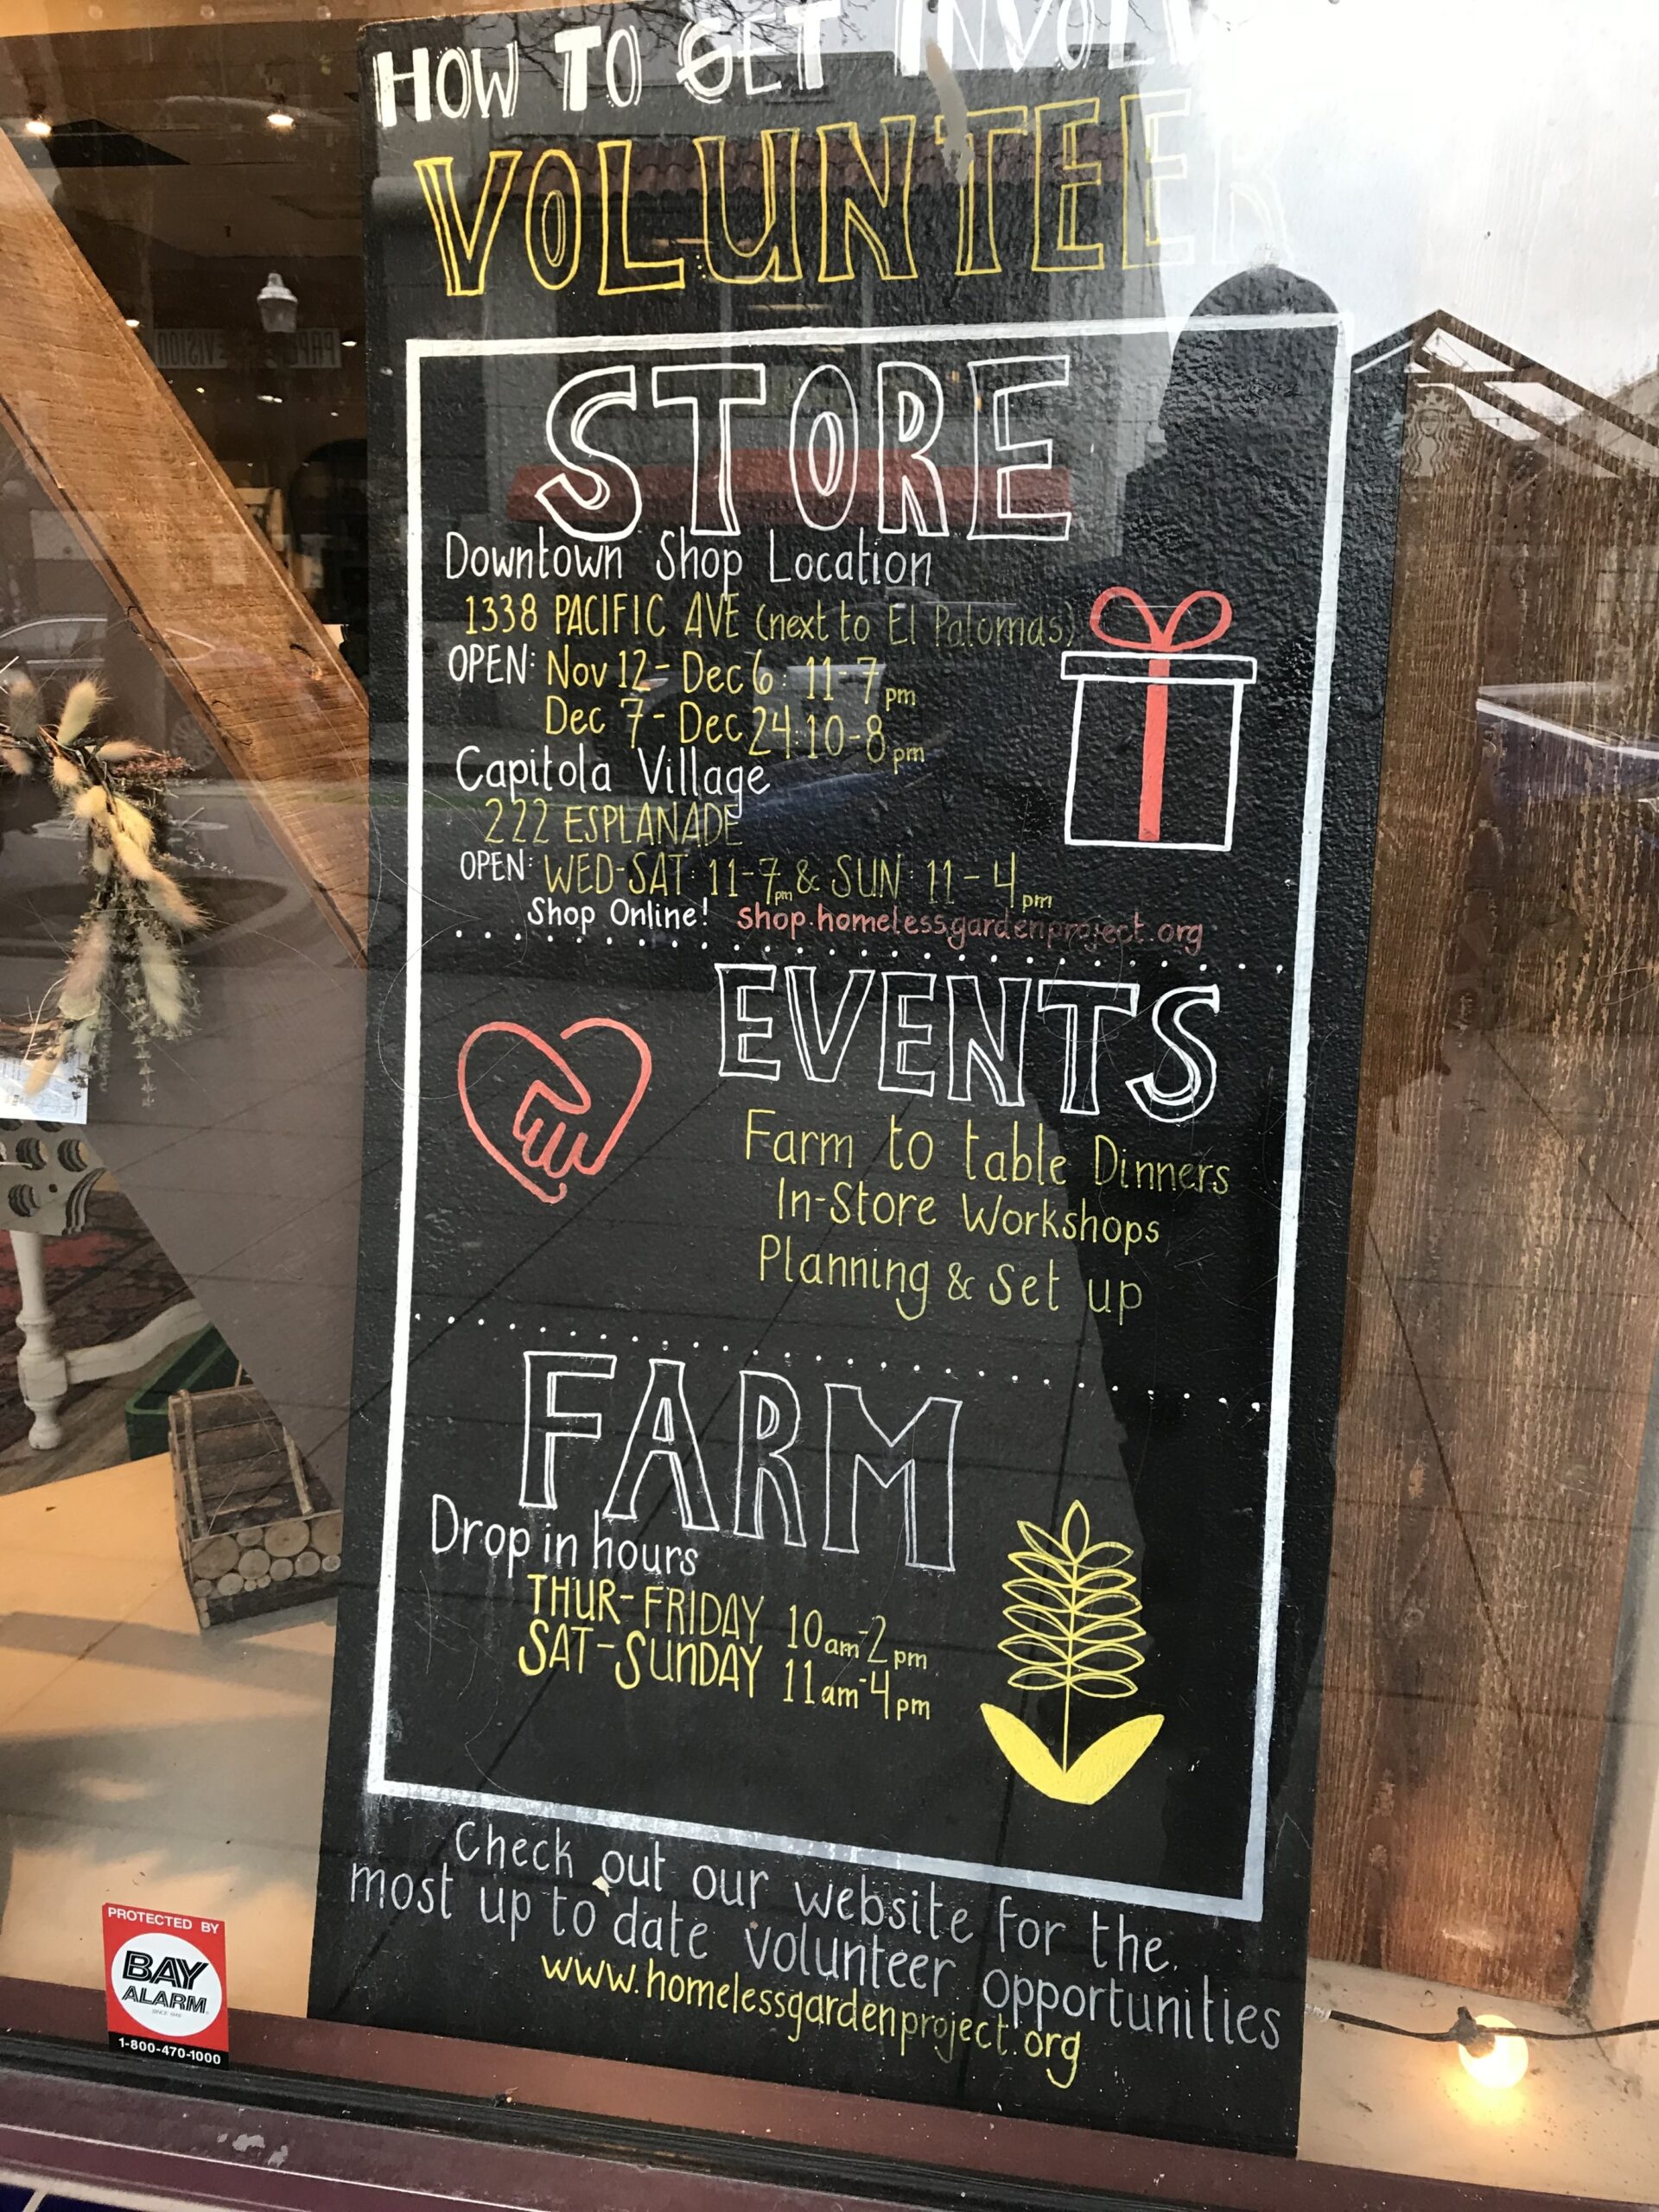 HOW TO GET INVOLV
VOLUNTEER
STORE
Downtown Shop Location
1338 PACIFIC AVE (next to El Palomas)
OPEN: Nov 12 - Dec 6: 11-7 pm
Dec 7 - Dec 24: 10-8 pm
Capitola Village
222 ESPLANADE
OPEN: WED-SAT: 11-7pm & SUN: 11-4 pm
Shop Online! shop.homelessgardenproject.org
EVENTS
Farm to table Dinners
In-Store Workshops
Planning & Set up
FARM
Drop in hours
THUR-FRIDAY 10am-2pm
SAT-SUNDAY 11am-4pm
Check out our website for the
most up to date volunteer opportunities
www.homelessgardenproject.org
PROTECTED BY
BAY
ALARM
1-800-470-1000